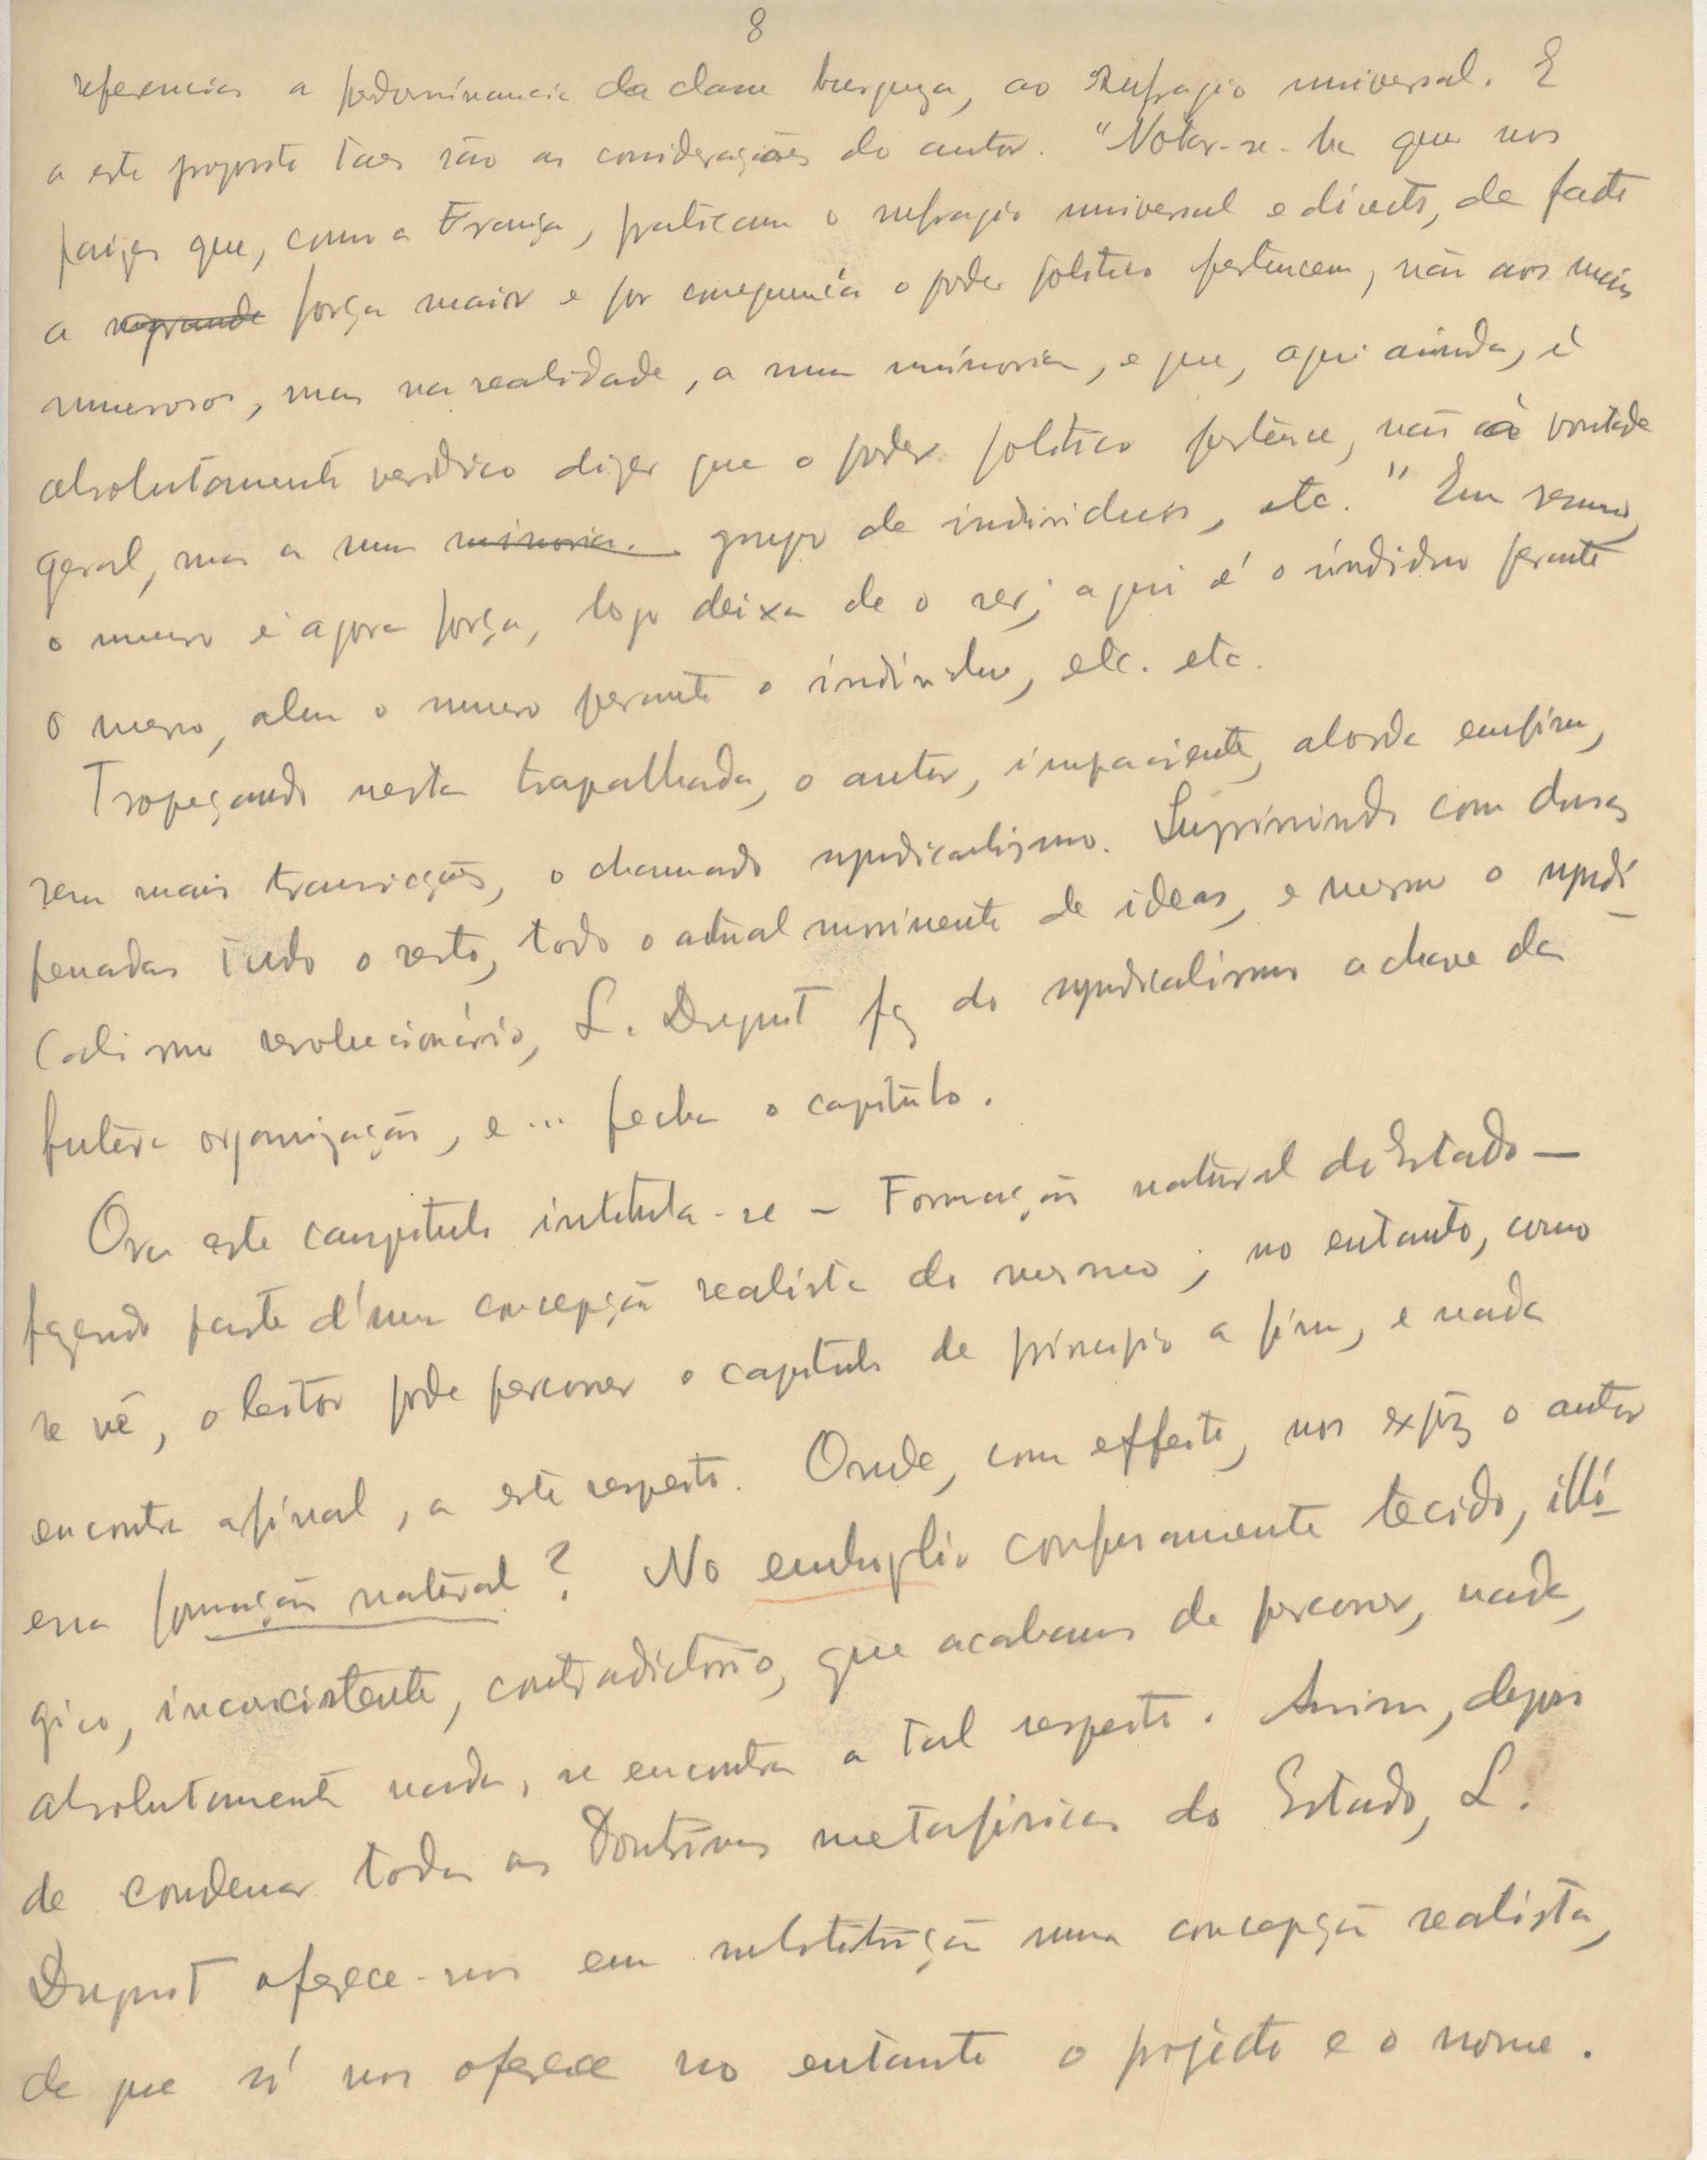 8
referencias a predominancia da classe burgueza, ao suffragio universal. E
a este proposito taes são as considerações do autor. "Notar-se-ha que nos
paizes que, como a França, praticam o suffragio universal e directo, de facto
a força maior e por consequencia o poder politico pertencem, não aos mais
numerosos, mas na realidade, a uma minoria, e que, aqui ainda, é
absolutamente veridico dizer que o poder politico pertence, não á vontade
geral, mas a um minoria. grupo de individuos, etc." Em resumo,
o numero é agora força, logo deixa de o ser; aqui é o individuo perante
o mero, alem o numero perante o individuo, etc. etc.
Tropeçando nesta trapalhada, o autor, impaciente, aborda emfim,
sem mais transições, o chamado syndicalismo. Suprimindo com duas
penadas tudo o resto, todo o actual movimento de ideas, e mesmo o syndi
calismo revolucionário, L. Duguit faz do syndicalismo a chave da
futura organização, e ... fecha o capitulo.
Ora este campitulo intitula-se – Formação natural do Estado —
fazendo parte d'uma concepção realista do mesmo; no entanto, como
se vê, o leitor pode percorrer o capitulo de principio a fim, e nada
encontra afinal, a este respeito. Onde, com effeito, nos expôz o autor
essa formação natural? No confusamente tecido, illó-
gico, inconsistente, contradictorio, que acabamos de percorrer, nada,
absolutamente nada, se encontra a tal respeito. Assim, depois
de condenar todas as Doutrinas metafisicas do Estado, L.
Duguit oferece-nos em substituição uma concepção realista,
de que só nos oferece no entanto o projecto e o nome.